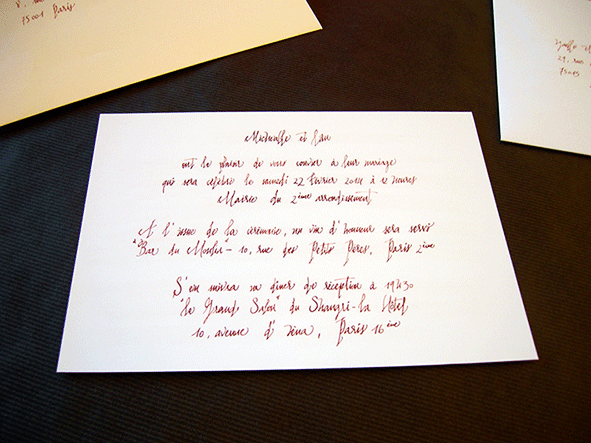 75001 Paris
75015
et
ont le plaisir de vous convier à leur mariage
qui sera célébré le samedi 22 février 2014 à 12 heures
Mairie du 2ème arrondissement
A l'issue de la cérémonie, un vin d'honneur sera servi
"Bar du Moulin" - 10, rue des Petits Pères, Paris 2ème
S'en suivra un dîner de réception à 19h30
"Le Grand Salon" du Shangri-la Hôtel
10, avenue d'Iéna, Paris 16ème